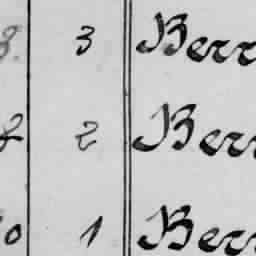 8. 3 Berr
2 2 Berr
0 1 Berr